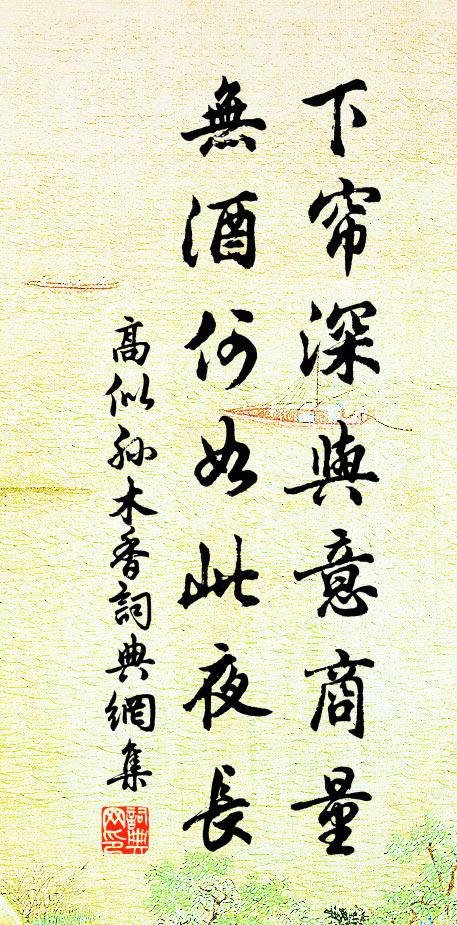 下帘深與意商量
無酒何如此夜長
高似孙木香詞典網集
詞典网印